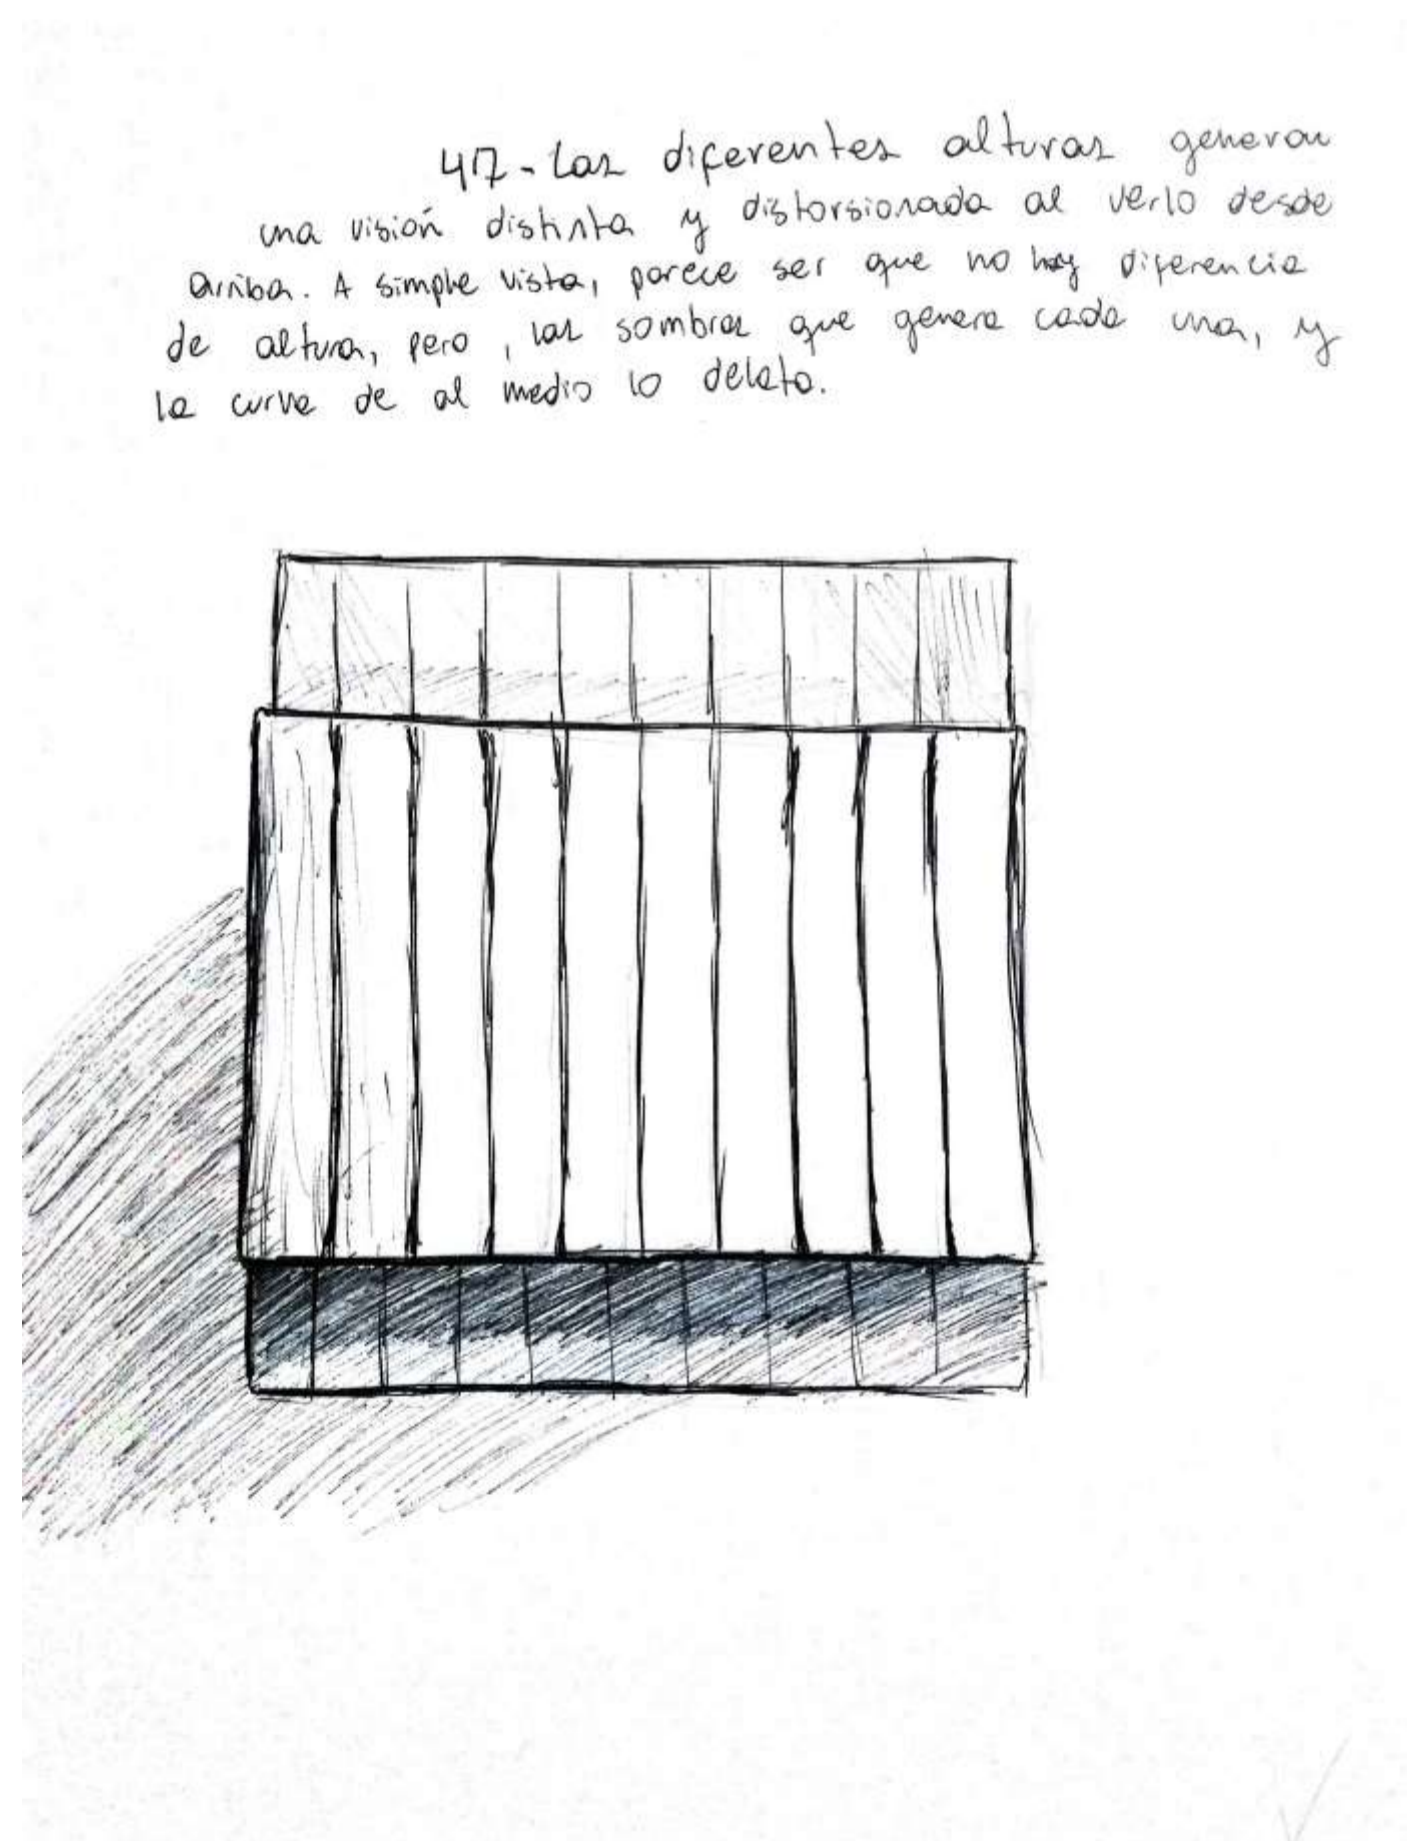 47-Las diferentes alturas generan
una visión distinta y distorsionada al verlo desde
arriba. A simple vista, parece ser que no hay diferencia
de altura, pero, las sombras que genera cada una, y
la curva de al medio lo delata.